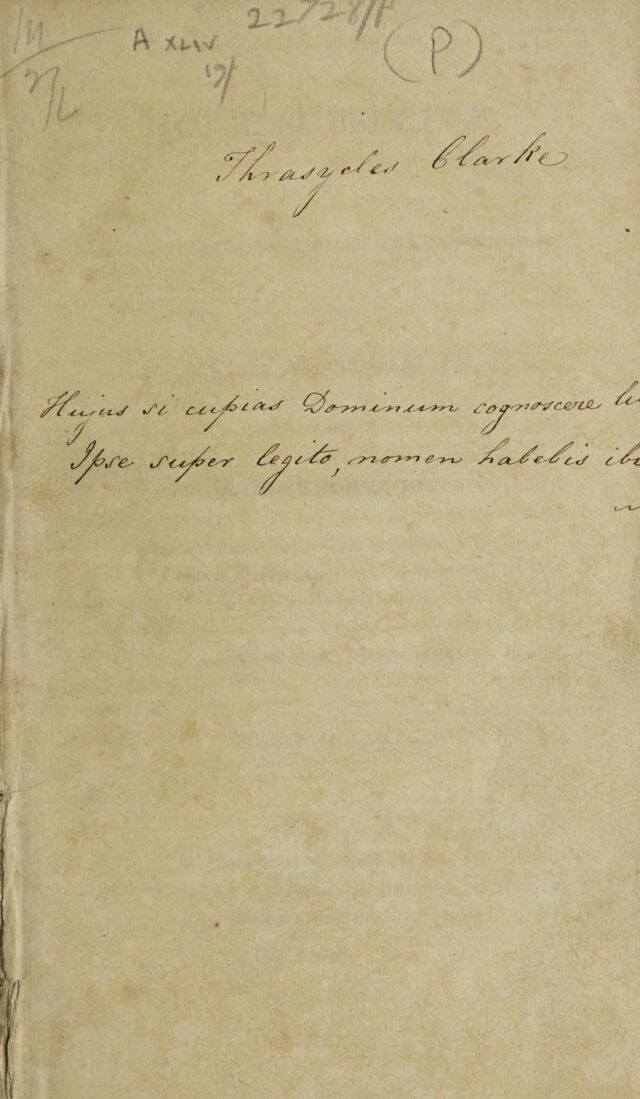 22728/P
(P)
A XLIV
Thrasycles Clarke
Hujus si cupias Dominum cognoscere
Ipse super legito, nomen habebis